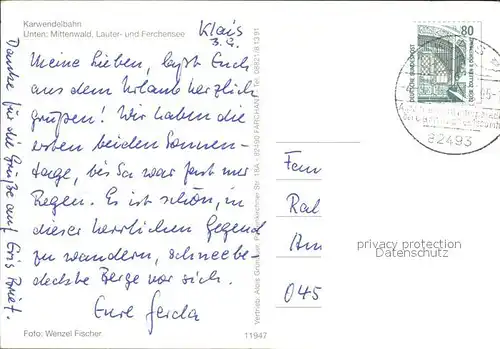 Karwendelbahn
Unten: Mittenwald, Lauter- und Ferchensee
Klais
3.9.
Meine Lieben, laßt Euch
aus dem Urlaub herzlich
grüßen! Wir haben die
ersten beiden Sonnen-
tage, bis Sa war fast nur
Regen. Es ist schön, in
dieser herrlichen Gegend
zu wandern, schneebe-
deckte Berge vor sich.
Eure Gerda
Danke für die Grüße auf Bries.
Foto: Wenzel Fischer
11947
Vertrieb: Alois 18A - 82490 FARCHANT
80
DEUTSCHE BUNDESPOST
82493
Fam
Ral
Am
045
privacy protection
Datenschutz